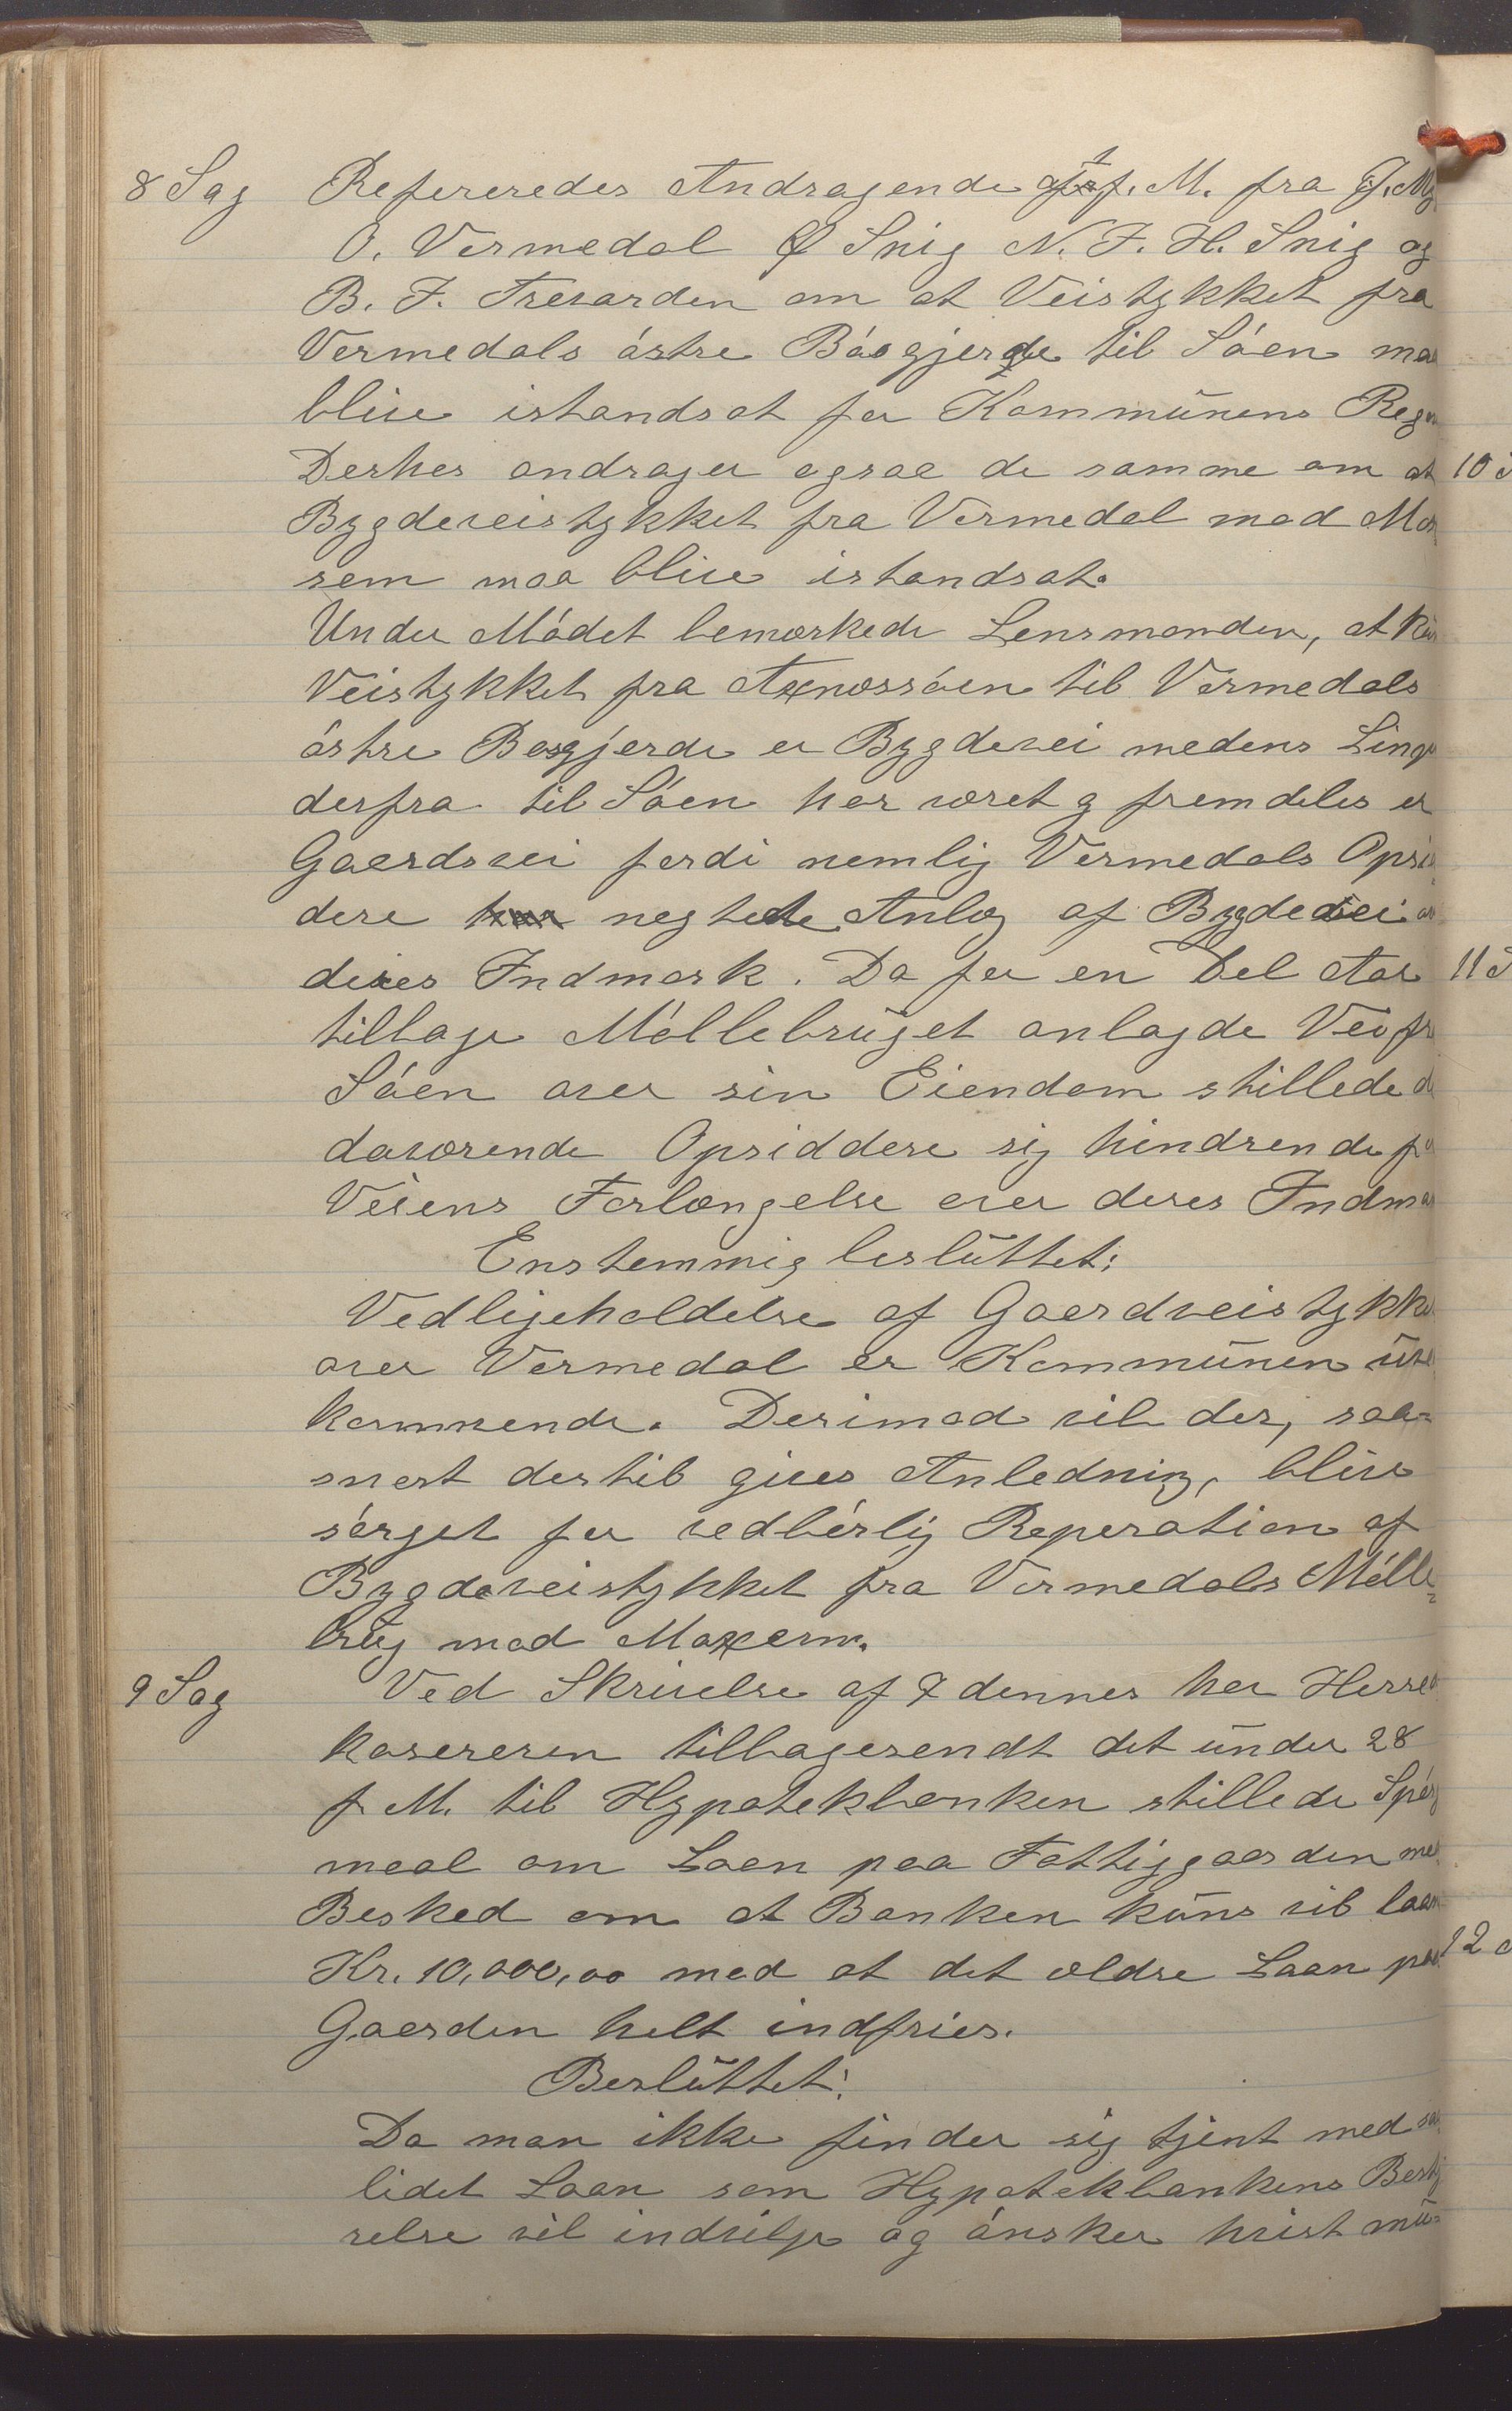 8 Sag Refereredes Andragende af 1 f. M. fra G. J. My
O. Vermedal O Snig N. J. H. Snig og
B. J. Trevarden om at Veistykket fra
Vermedals óstre Bóegjerde til Sóen maa
blive istandsat for Kommunens Regn
Derhos andrager ogsaa de samme om at
Bygdeveistykket fra Vermedal mod Mox
sem maa blive istandsat.
Under Módet bemærkede Lensmanden, at kun
Veistykket fra Axnessóen til Vermedals
óstre Bøegjerde er Bygdevei medens Linj
derfra til Sóen har været g fremdeles er
Gaardsvei fordi nemlig Vermedals Opsid
dere negtede Anlæg af Bygdevei over
deres Indmark. Da for en Del Aar
tilbage Móllebruget anlagde Vei fra
Sóen over sin Eiendom stillede de
daværende Opsiddere sig hindrende for
Veiens Forlængelse over deres Indmar
Enstemmig besluttet:
Vedligeholdelse af Gaardveistykke
over Vermedal er Kommunen uved
kommende. Derimod vil der, saa-
snart dertil gives Anledning, blive
sórget for vedbórlig Reperation af
Bygdeveistykket fra Vermedals Mólle
brug mod Moxem.
9 Sag Ved Skrivelse af 7 dennes har Herreds
kasereren tilbagesendt det under 28
f. M. til Hypotekbanken stillede Spórs
maal om Laan paa Fattiggaarden med
Besked om at Banken kuns vil laan
Kr. 10,000,00 mod at det ældre Laan paa
Gaarden helt indfries.
Besluttet:
Da man ikke finder sig tjent med saa
lidet Laan som Hypotekbankens Besty
relse vil indvilge og ónsker hvist mu-
10 S
11 S
12